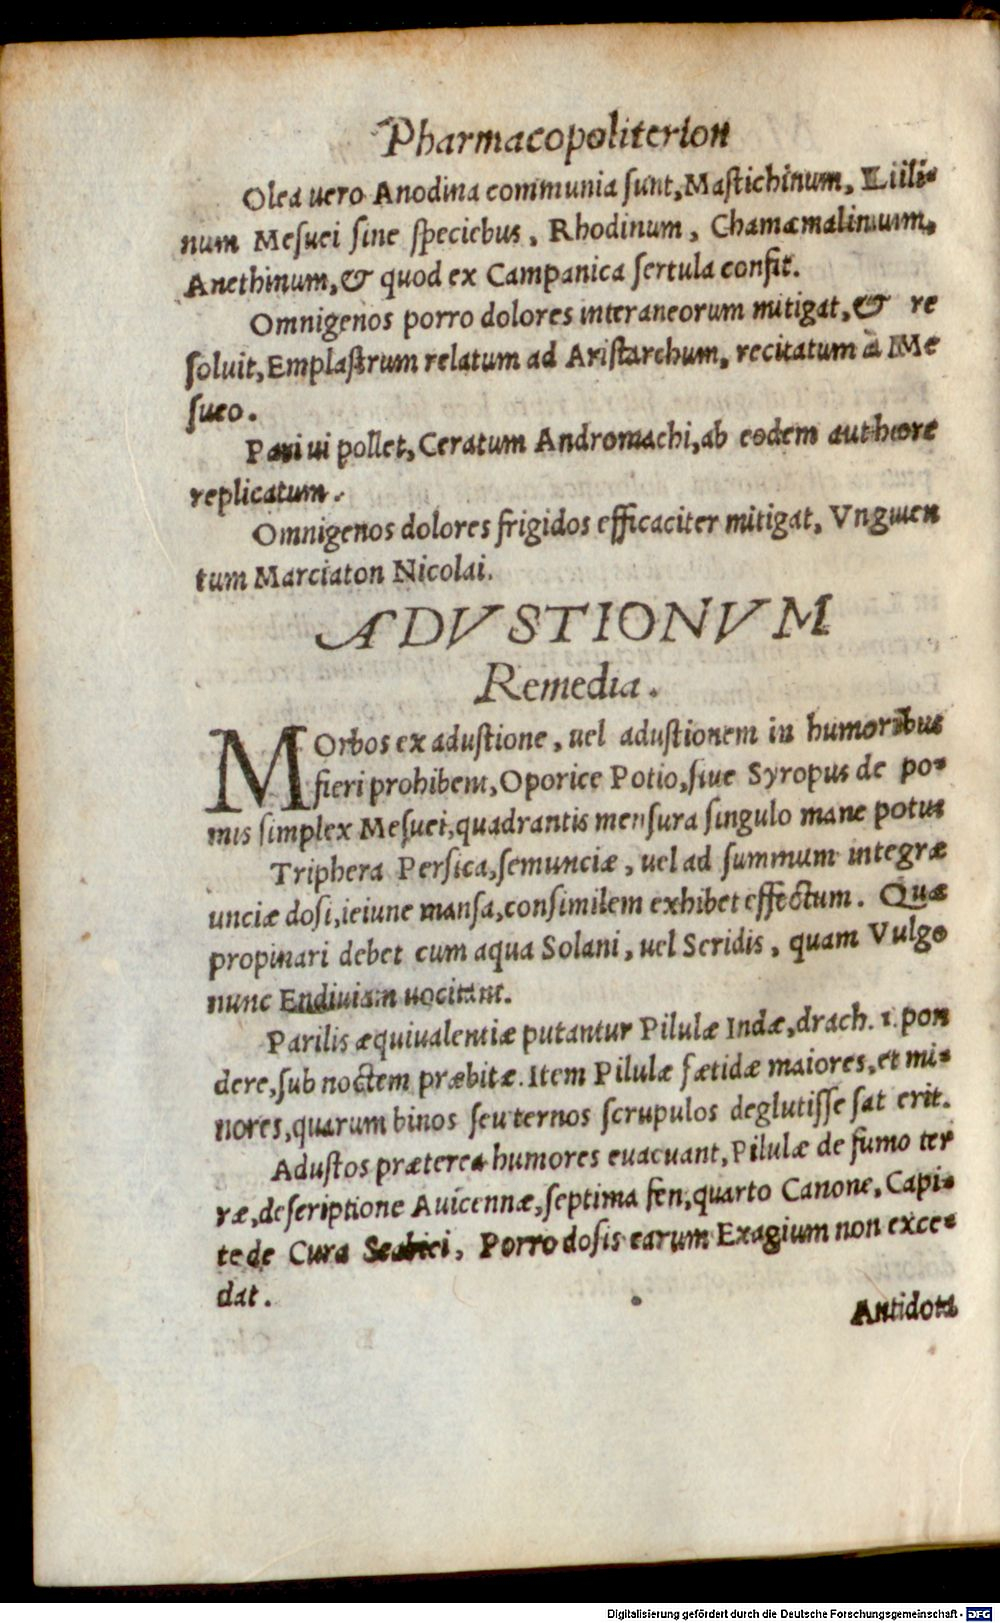 Pharmacopoliterion
Olea uero Anodina communia sunt, Mastichinum, Liili-
num Mesuei sine speciebus, Rhodinum, Chamæmalinum,
Anethinum, & quod ex Campanica sertula confit.
Omnigenos porro dolores interaneorum mitigat, & re
soluit, Emplastrum relatum ad Aristarchum, recitatum à Me
sueo.
Pari ui pollet, Ceratum Andromachi, ab eodem authore
replicatum.
Omnigenos dolores frigidos efficaciter mitigat, Vnguen
tum Marciaton Nicolai.
ADVSTIONVM
Remedia.
MOrbos ex adustione, uel adustionem in humoribus
fieri prohibent, Oporice Potio, siue Syropus de po-
mis simplex Mesuei, quadrantis mensura singulo mane potus
Triphera Persica, semunciæ, uel ad summum integræ
unciæ dosi, ieiune mansa, consimilem exhibet effectum. Quæ
propinari debet cum aqua Solani, uel Seridis, quam Vulgo
nunc Endiuiam uocitant.
Parilis æquiualentiæ putantur Pilulæ Indæ, drach. 1. pon
dere, sub noctem præbitæ. Item Pilulæ fætidæ maiores, et mi-
nores, quarum binos seu ternos scrupulos deglutisse sat erit.
Adustos præterea humores euacuant, Pilulæ de fumo ter
ræ, descriptione Auicennæ, septima fen, quarto Canone, Capi-
te de Cura Scabiei, Porro dosis earum Exagium non exce-
dat.
Antidota
Digitalisierung gefördert durch die Deutsche Forschungsgemeinschaft - DFG